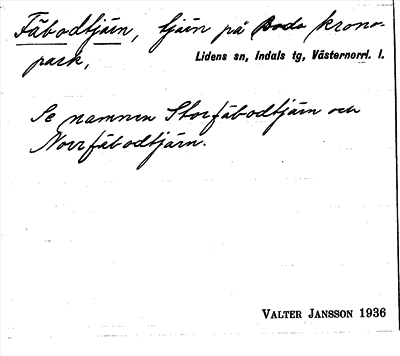 Fäbodtjärn, tjärn på Boda krono-
park, Lidens sn, Indals tg, Västernorrl. l.
Se namnen Storfäbodtjärn och
Norrfäbodtjärn.
VALTER JANSSON 1936